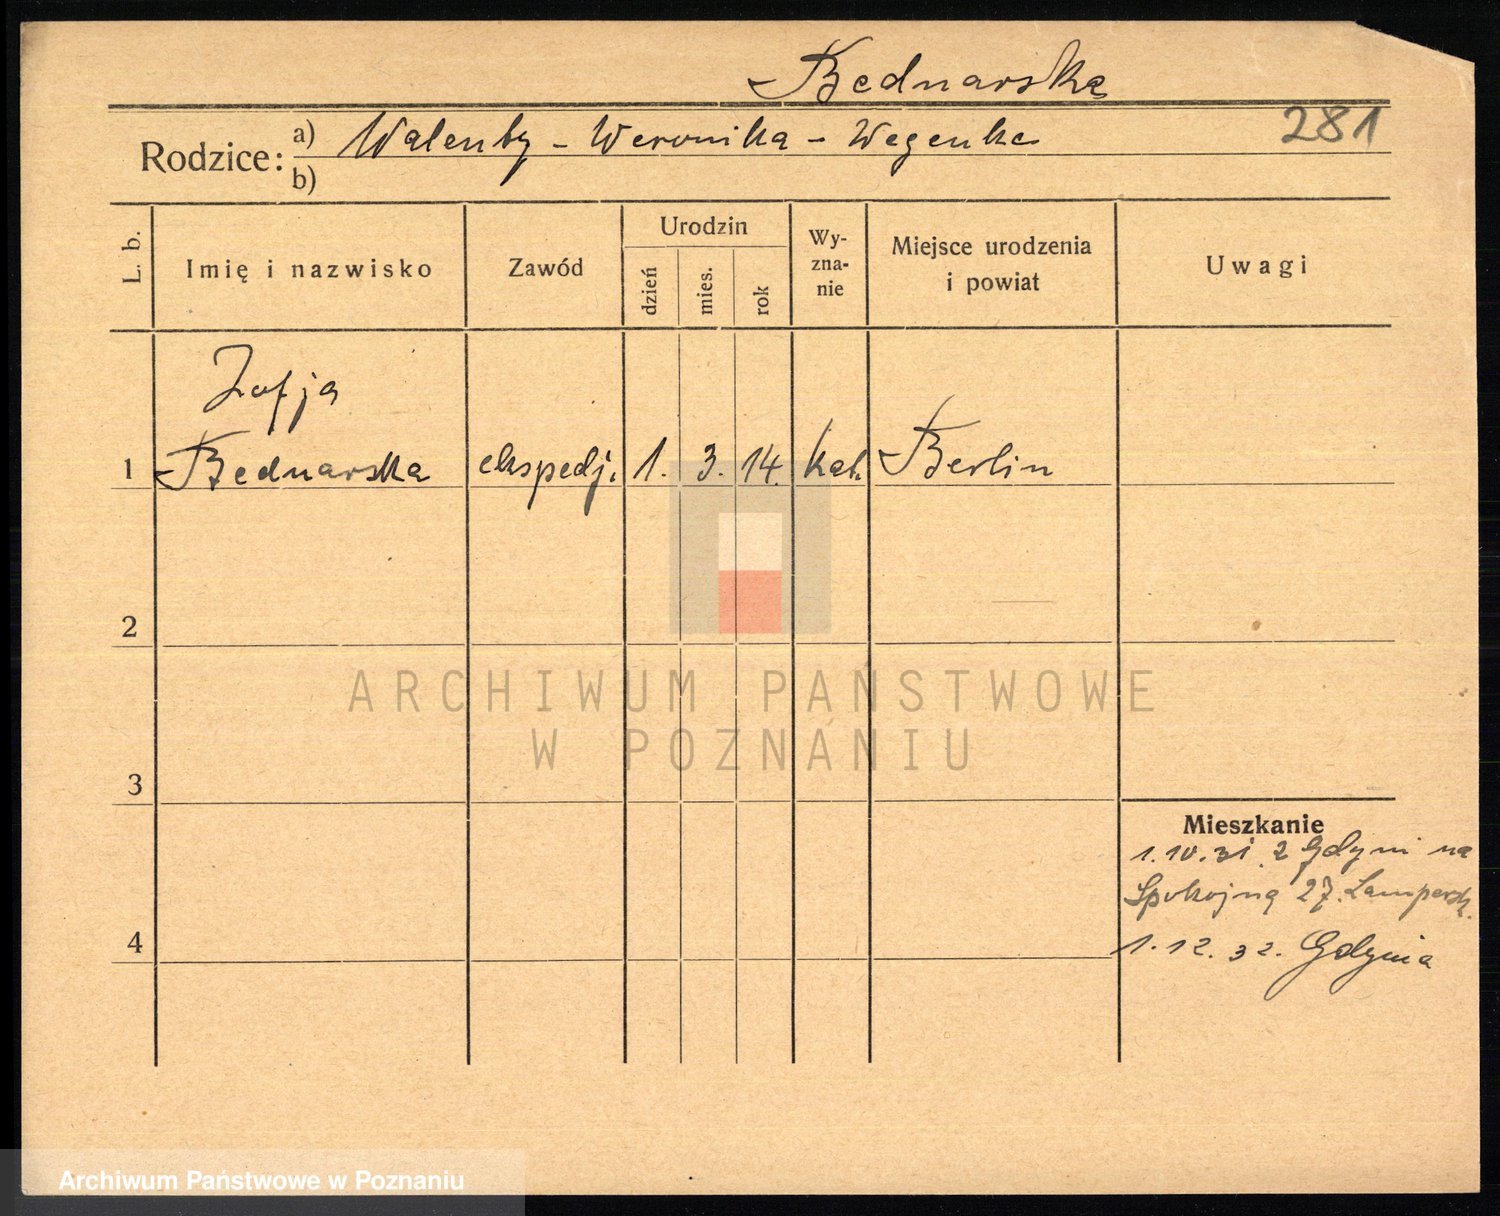 Bednarska
281
Rodzice: a) Walenty - Weronika - Wegenke
b)
L. b. Imię i nazwisko Zawód Urodzin dzień mies. rok Wy-zna-nie Miejsce urodzenia i powiat Uwagi
Zofja
1 Bednarska ekspedj. 1. 3. 14. kat. Berlin
2
ARCHIWUM PAŃSTWOWE
W POZNANIU
3
Mieszkanie
1.10.31 z Gdyni na
Spokojną 27.
4 1.12.32. Gdynia
Archiwum Państwowe w Poznaniu